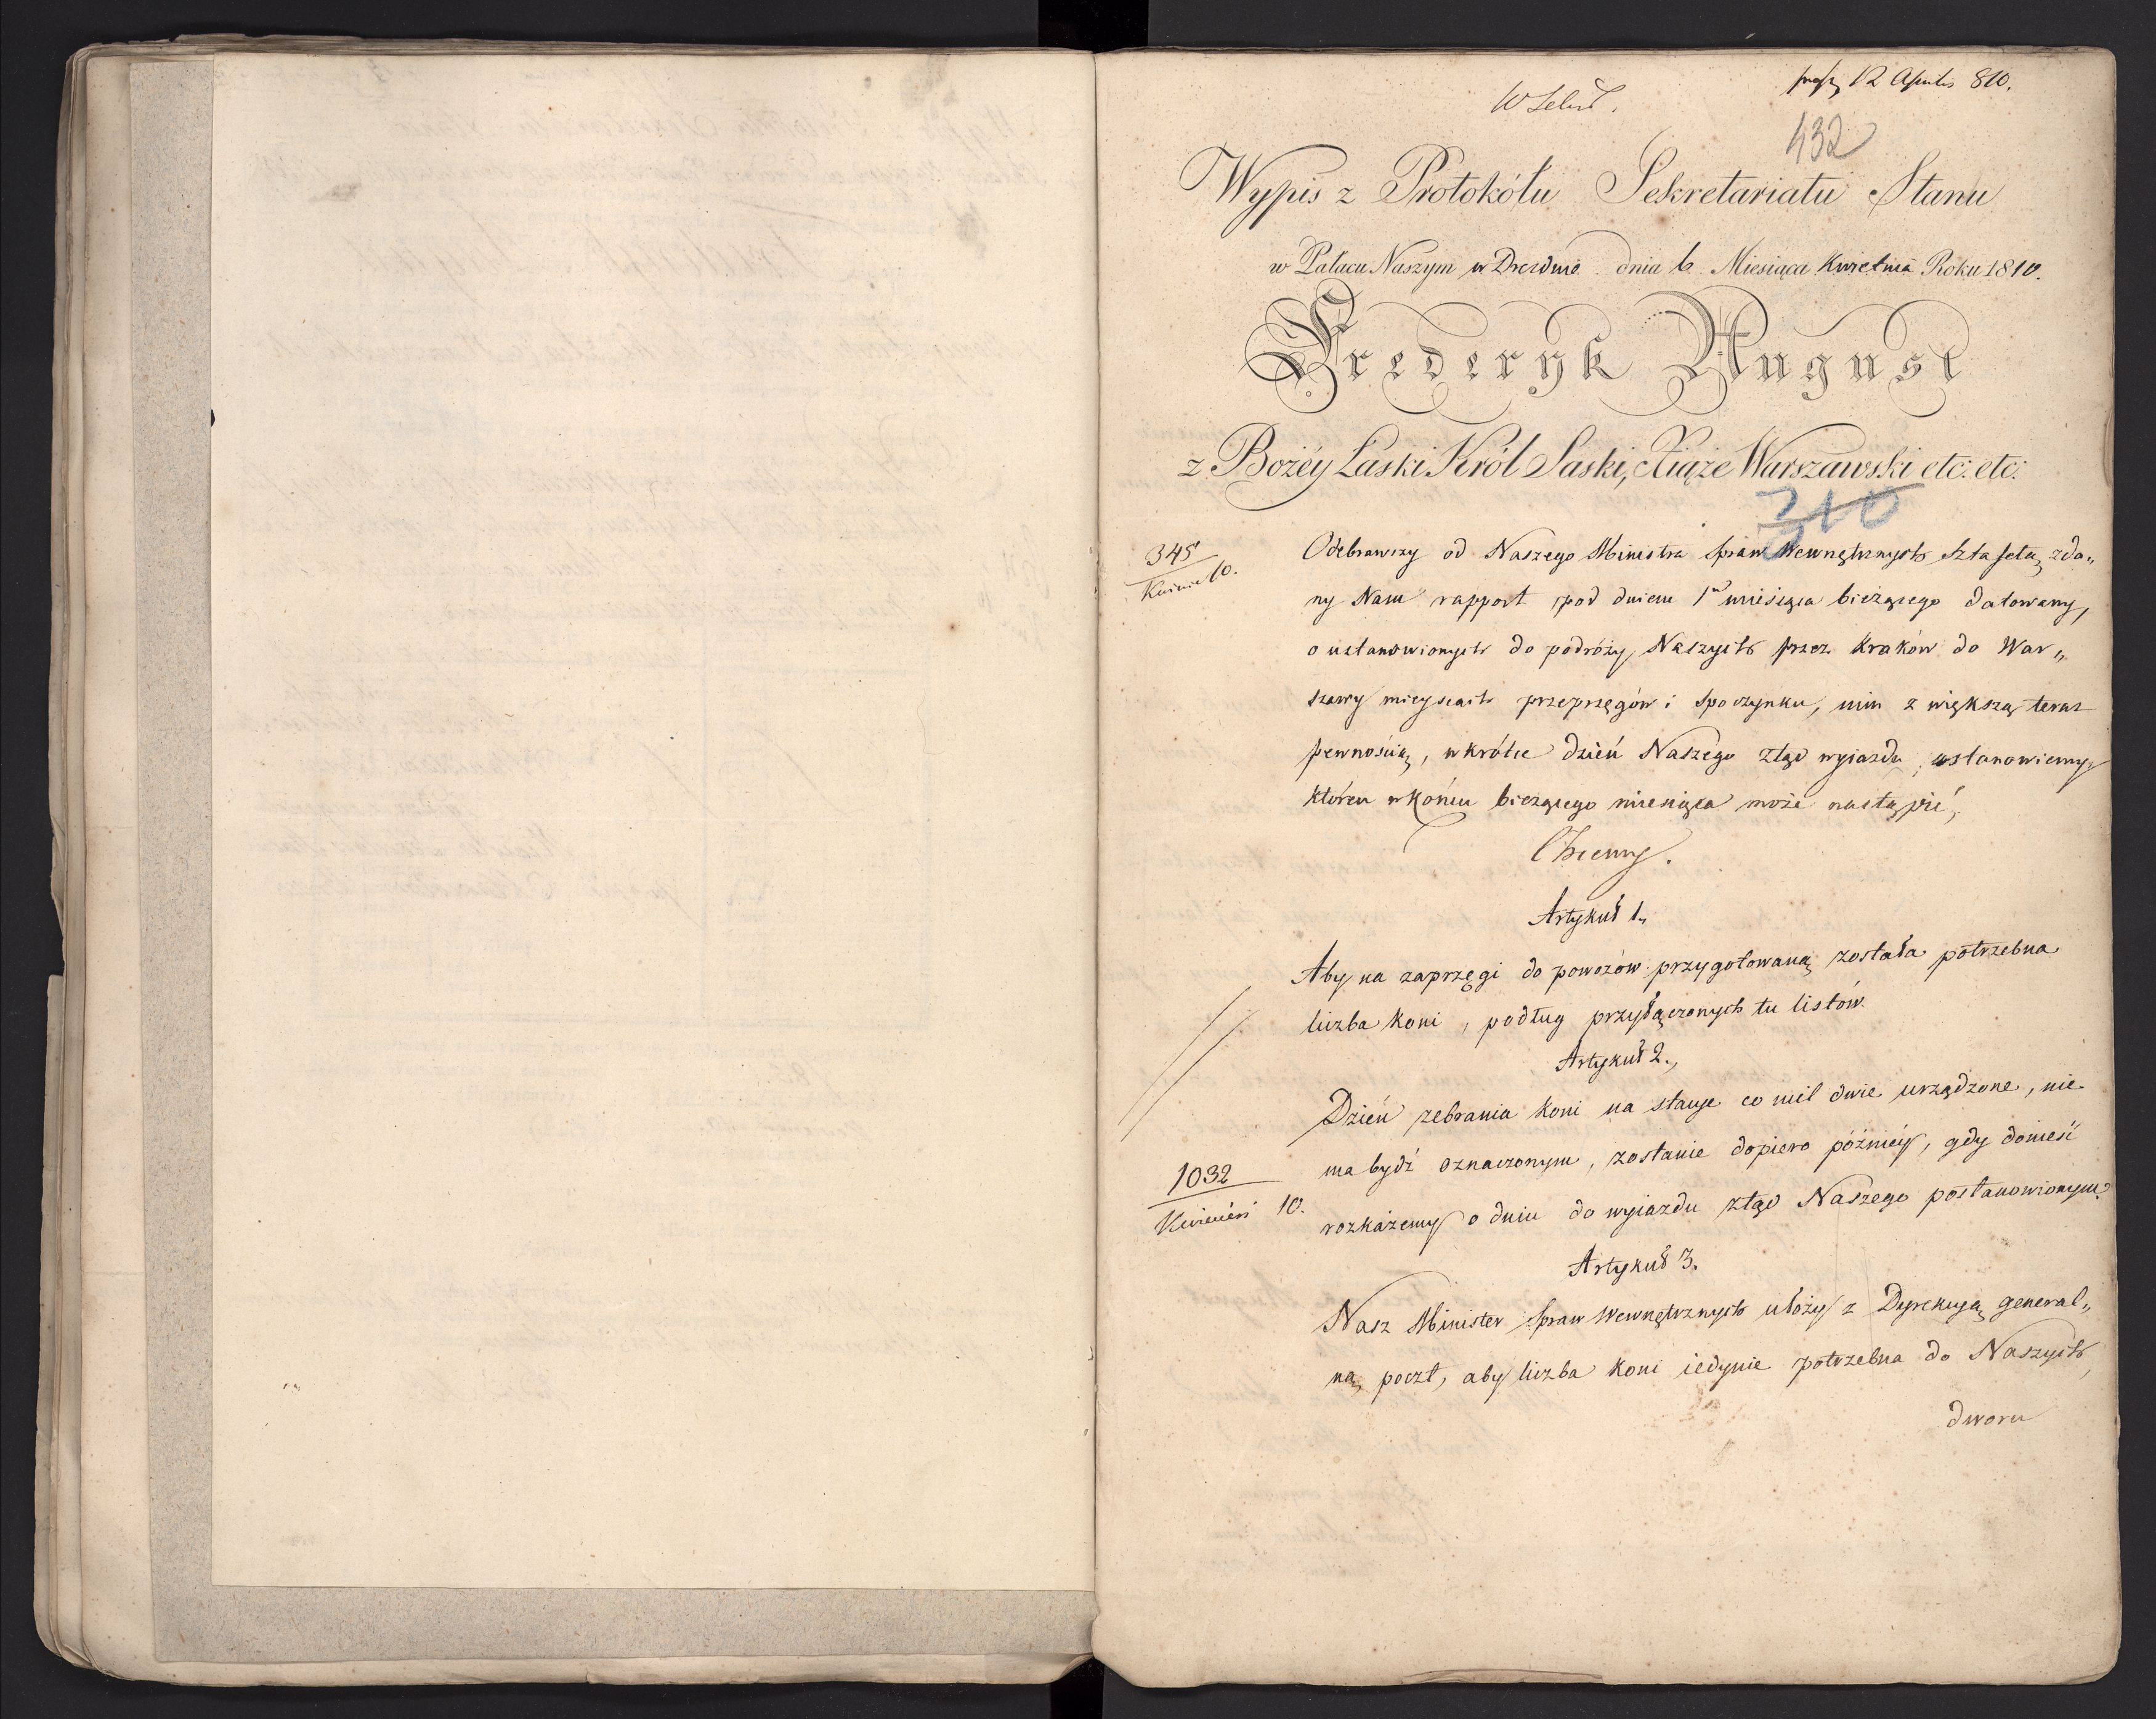 12 Aprilis 810.
432
Wypis z Protokółu Sekretariatu Stanu
w Pałacu Naszym w Dreźnie dnia 6 Miesiąca Kwietnia Roku 1810.
Frederyk August
z Bożéy Łaski Król Saski, Xiąże Warszawski etc: etc:
310
345
Kwiecie 10.
Odebrawszy od Naszego Ministra Spraw Wewnętrznych sztafetą zda„
ny Nam rapport pod dniem 1º miesiąca bieżącego datowany,
o ustanowionych do podróży Naszych przez Kraków do War„
szawy mieyscach przeprzęgów i spoczynku, nim z większą teraz
pewnością, wkrótce dzień Naszego ztąd wyiazdu ustanowiemy,
któren w końcu bieżącego miesiąca może nastąpić,
Chcemy.
Artykuł 1.
Aby na zaprzęgi do powozów przygotowaną została potrzebna
liczba koni, podług przyłączonych tu listów.
Artykuł 2.
Dzień zebrania koni na stacye co mil dwie urządzone, nie
ma bydź oznaczonym, zostanie dopiero późniéy, gdy donieść
1032
Kwiecień 10.
rozkażemy o dniu do wyiazdu ztąd Naszego postanowionym.
Artykuł 3.
Nasz Minister Spraw Wewnętrznych ułoży z Dyrekcyą general„
ną poczt, aby liczba koni iedynie potrzebna do Naszych
dworu